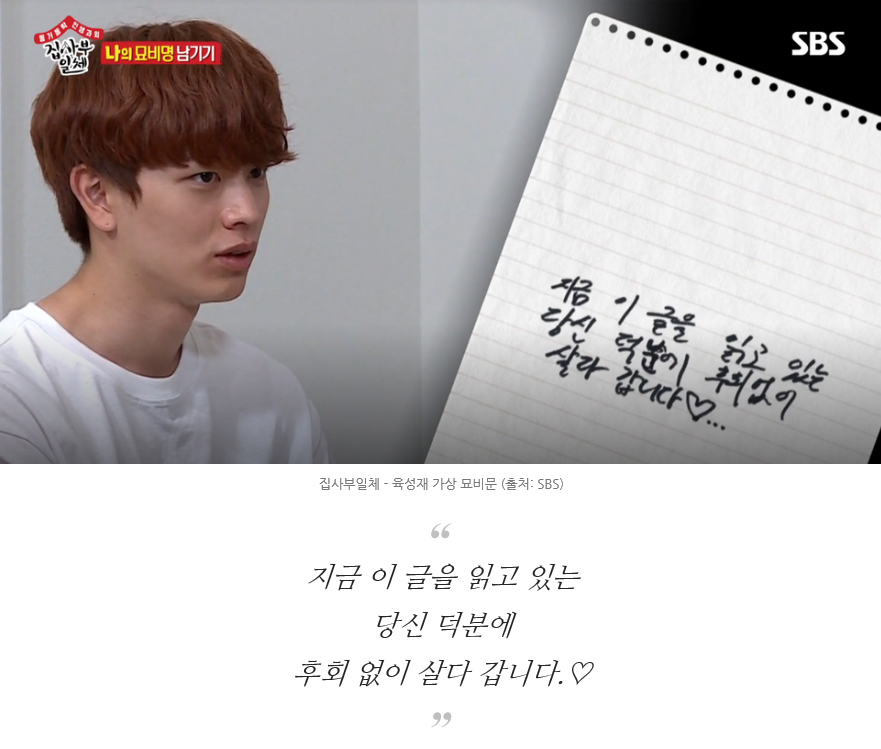 동거동락 인생과외
집사부
일체
나의 묘비명 남기기
SBS
지금 이 글을 읽고 있는
당신 덕분에 후회없이
살다 갑니다♡...
집사부일체 - 육성재 가상 묘비문 (출처: SBS)
“
지금 이 글을 읽고 있는
당신 덕분에
후회 없이 살다 갑니다.♡
”